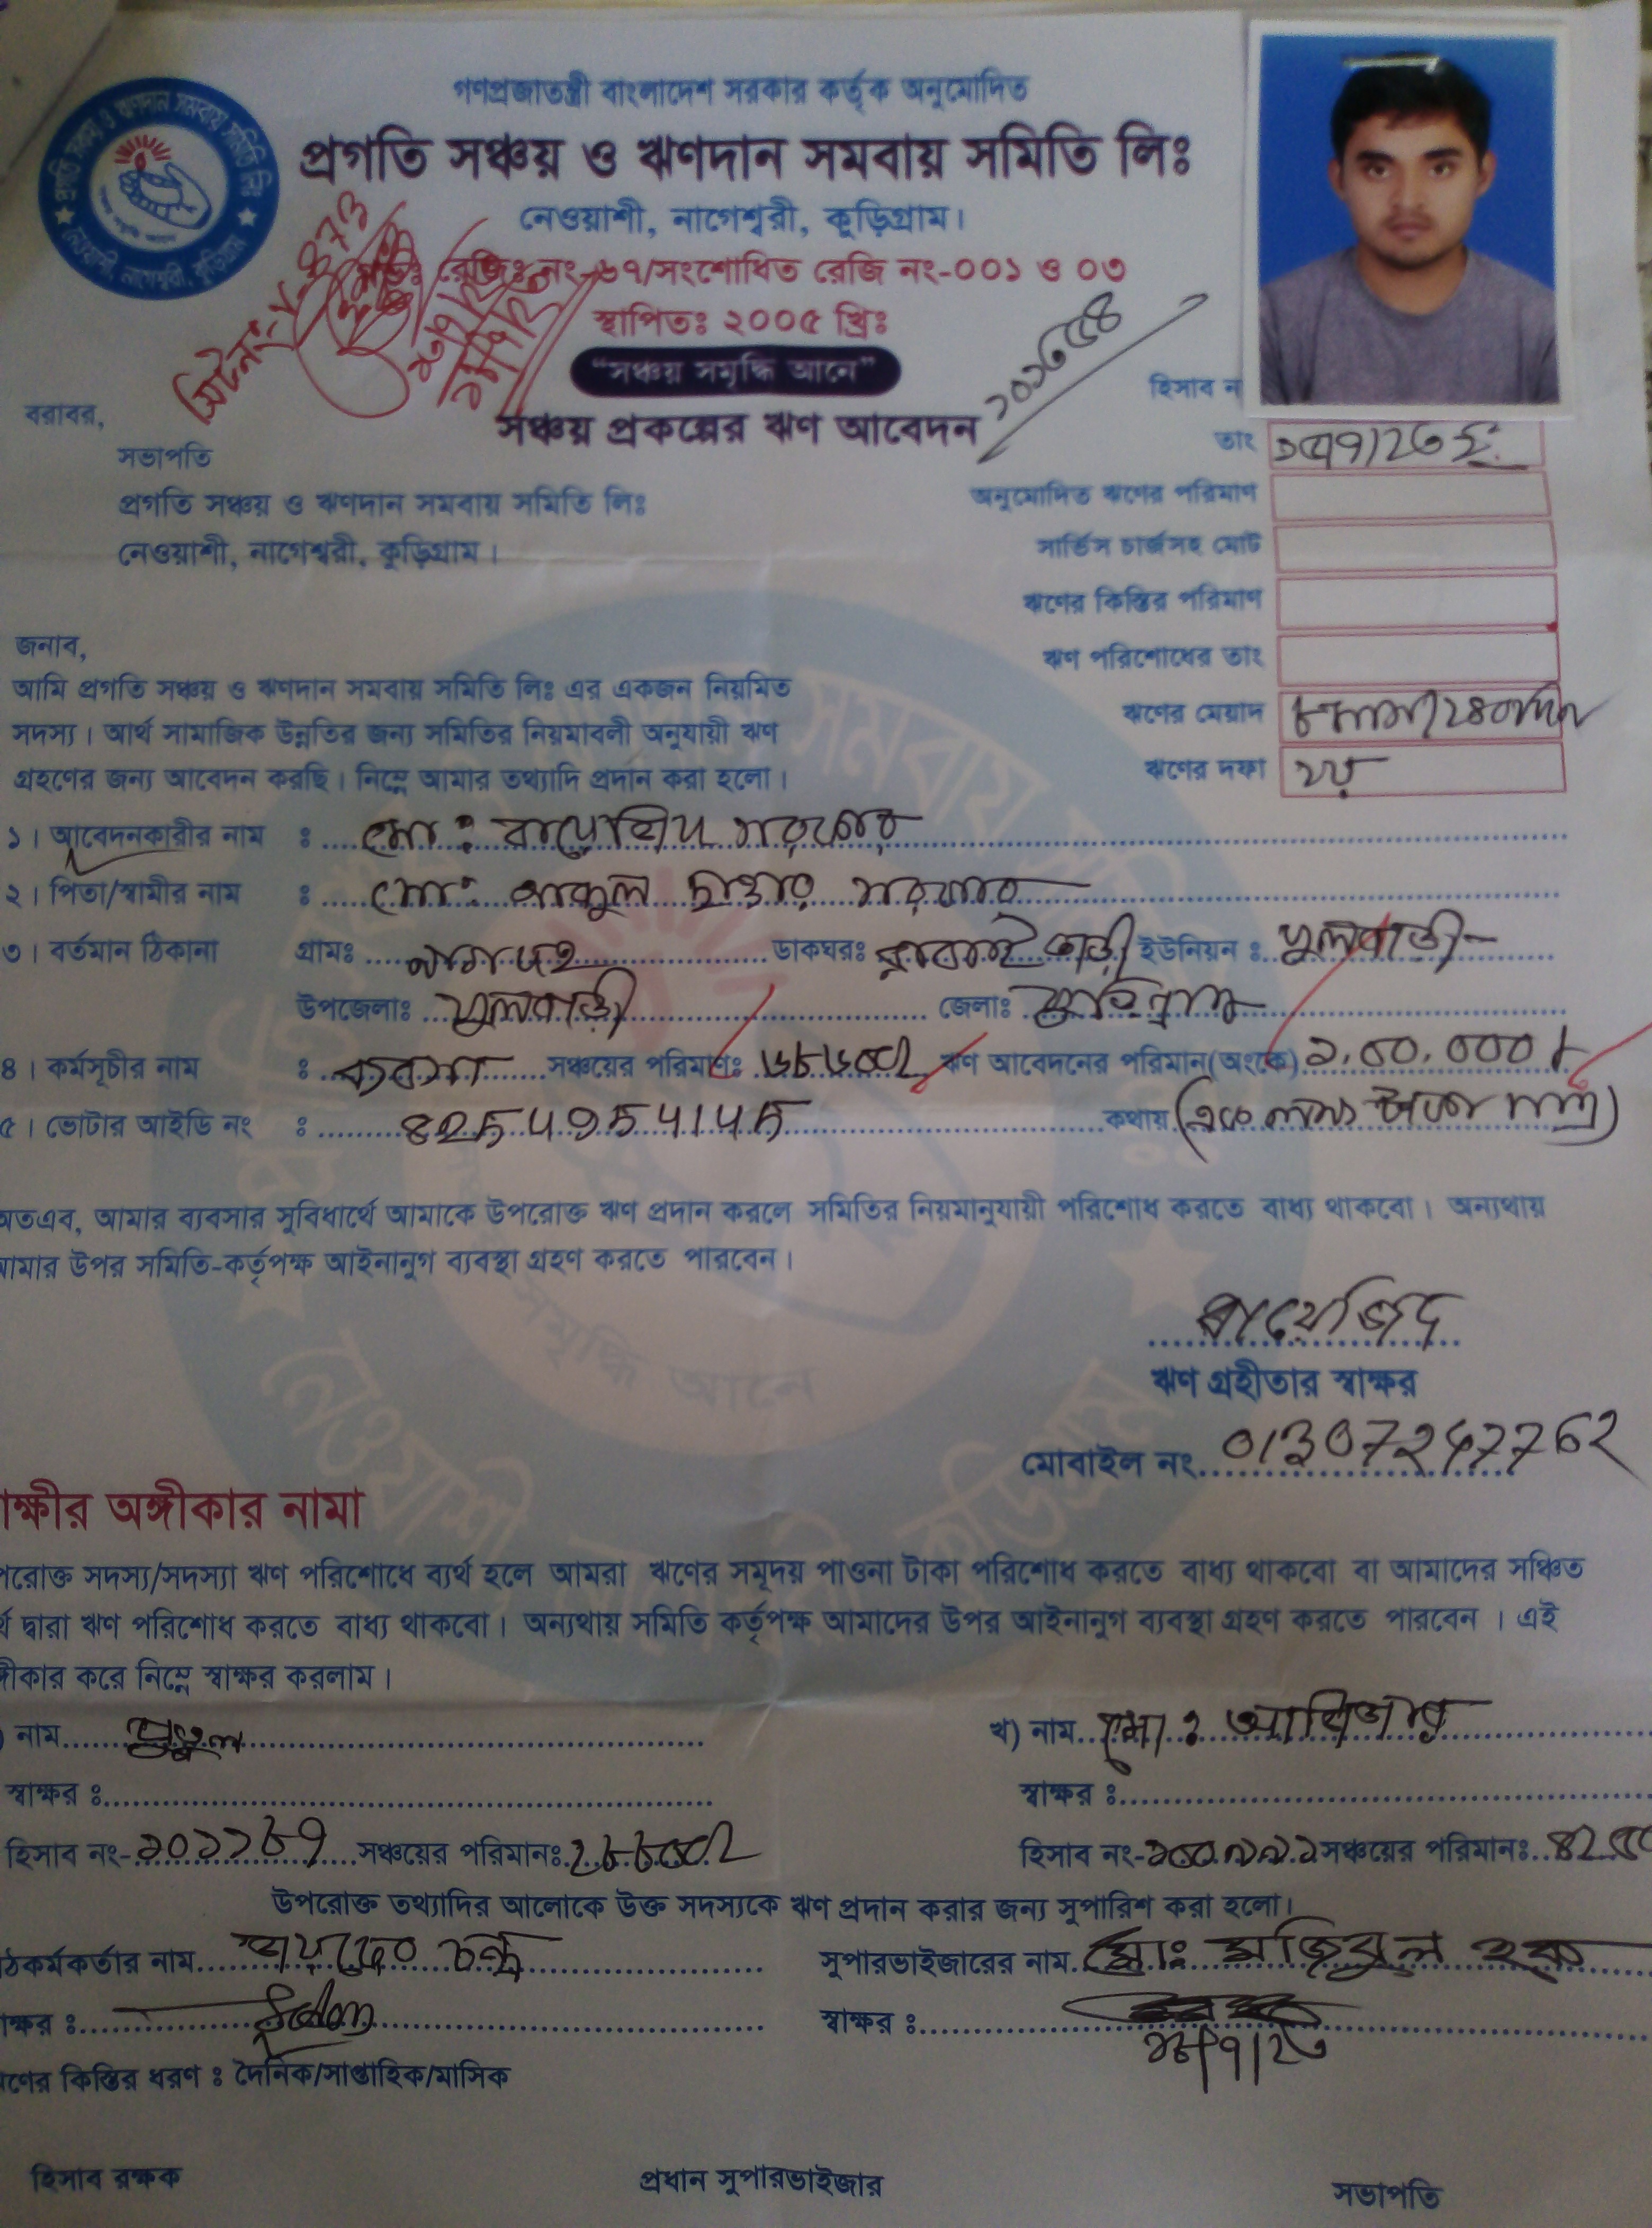 গণপ্রজাতন্ত্রী বাংলাদেশ সরকার কর্তৃক অনুমোদিত
প্রগতি সঞ্চয় ও ঋণদান সমবায় সমিতি লিঃ
নেওয়াশী, নাগেশ্বরী, কুড়িগ্রাম।
রেজিঃ নং-৬৭/সংশোধিত রেজি নং-০০১ ও ০৩
স্থাপিতঃ ২০০৫ খ্রিঃ
“সঞ্চয় সমৃদ্ধি আনে”
সঞ্চয় প্রকল্পের ঋণ আবেদন
হিসাব ন
বরাবর,
সভাপতি
প্রগতি সঞ্চয় ও ঋণদান সমবায় সমিতি লিঃ
নেওয়াশী, নাগেশ্বরী, কুড়িগ্রাম।
তাং
অনুমোদিত ঋণের পরিমাণ
সার্ভিস চার্জসহ মোট
ঋণের কিস্তির পরিমাণ
ঋণ পরিশোধের তাং
ঋণের মেয়াদ ৮মাস/২৪০দিন
ঋণের দফা ২য়
জনাব,
আমি প্রগতি সঞ্চয় ও ঋণদান সমবায় সমিতি লিঃ এর একজন নিয়মিত
সদস্য। আর্থ সামাজিক উন্নতির জন্য সমিতির নিয়মাবলী অনুযায়ী ঋণ
গ্রহণের জন্য আবেদন করছি। নিম্নে আমার তথ্যাদি প্রদান করা হলো।
১। আবেদনকারীর নাম ঃ মোঃ বায়েজিদ সরকার
২। পিতা/স্বামীর নাম ঃ মোঃ ছাত্তার সরকার
৩। বর্তমান ঠিকানা গ্রামঃ ডাকঘরঃ ইউনিয়ন ঃ ফুলবাড়ী
উপজেলাঃ ফুলবাড়ী জেলাঃ কুড়িগ্রাম
৪। কর্মসূচীর নাম ঃ ব্যবসা সঞ্চয়ের পরিমাণঃ ঋণ আবেদনের পরিমান(অংকে) ১,০০,০০০/-
৫। ভোটার আইডি নং ঃ কথায় (এক লক্ষ টাকা মাত্র)
অতএব, আমার ব্যবসার সুবিধার্থে আমাকে উপরোক্ত ঋণ প্রদান করলে সমিতির নিয়মানুযায়ী পরিশোধ করতে বাধ্য থাকবো। অন্যথায়
আমার উপর সমিতি-কর্তৃপক্ষ আইনানুগ ব্যবস্থা গ্রহণ করতে পারবেন।
বায়েজিদ
ঋণ গ্রহীতার স্বাক্ষর
মোবাইল নং. 01307247762
ক্ষীর অঙ্গীকার নামা
পরোক্ত সদস্য/সদস্যা ঋণ পরিশোধে ব্যর্থ হলে আমরা ঋণের সমূদয় পাওনা টাকা পরিশোধ করতে বাধ্য থাকবো বা আমাদের সঞ্চিত
র্থ দ্বারা ঋণ পরিশোধ করতে বাধ্য থাকবো। অন্যথায় সমিতি কর্তৃপক্ষ আমাদের উপর আইনানুগ ব্যবস্থা গ্রহণ করতে পারবেন । এই
ঙ্গীকার করে নিম্নে স্বাক্ষর করলাম।
) নাম খ) নাম মোঃ
স্বাক্ষর ঃ স্বাক্ষর ঃ
হিসাব নং- ১০১১৮৭ সঞ্চয়ের পরিমানঃ হিসাব নং- সঞ্চয়ের পরিমানঃ
উপরোক্ত তথ্যাদির আলোকে উক্ত সদস্যকে ঋণ প্রদান করার জন্য সুপারিশ করা হলো।
ঠকর্মকর্তার নাম চন্দ্র সুপারভাইজারের নাম মোঃ মজিবুল হক
ক্ষর ঃ স্বাক্ষর ঃ
ণের কিস্তির ধরণ ঃ দৈনিক/সাপ্তাহিক/মাসিক
হিসাব রক্ষক প্রধান সুপারভাইজার সভাপতি